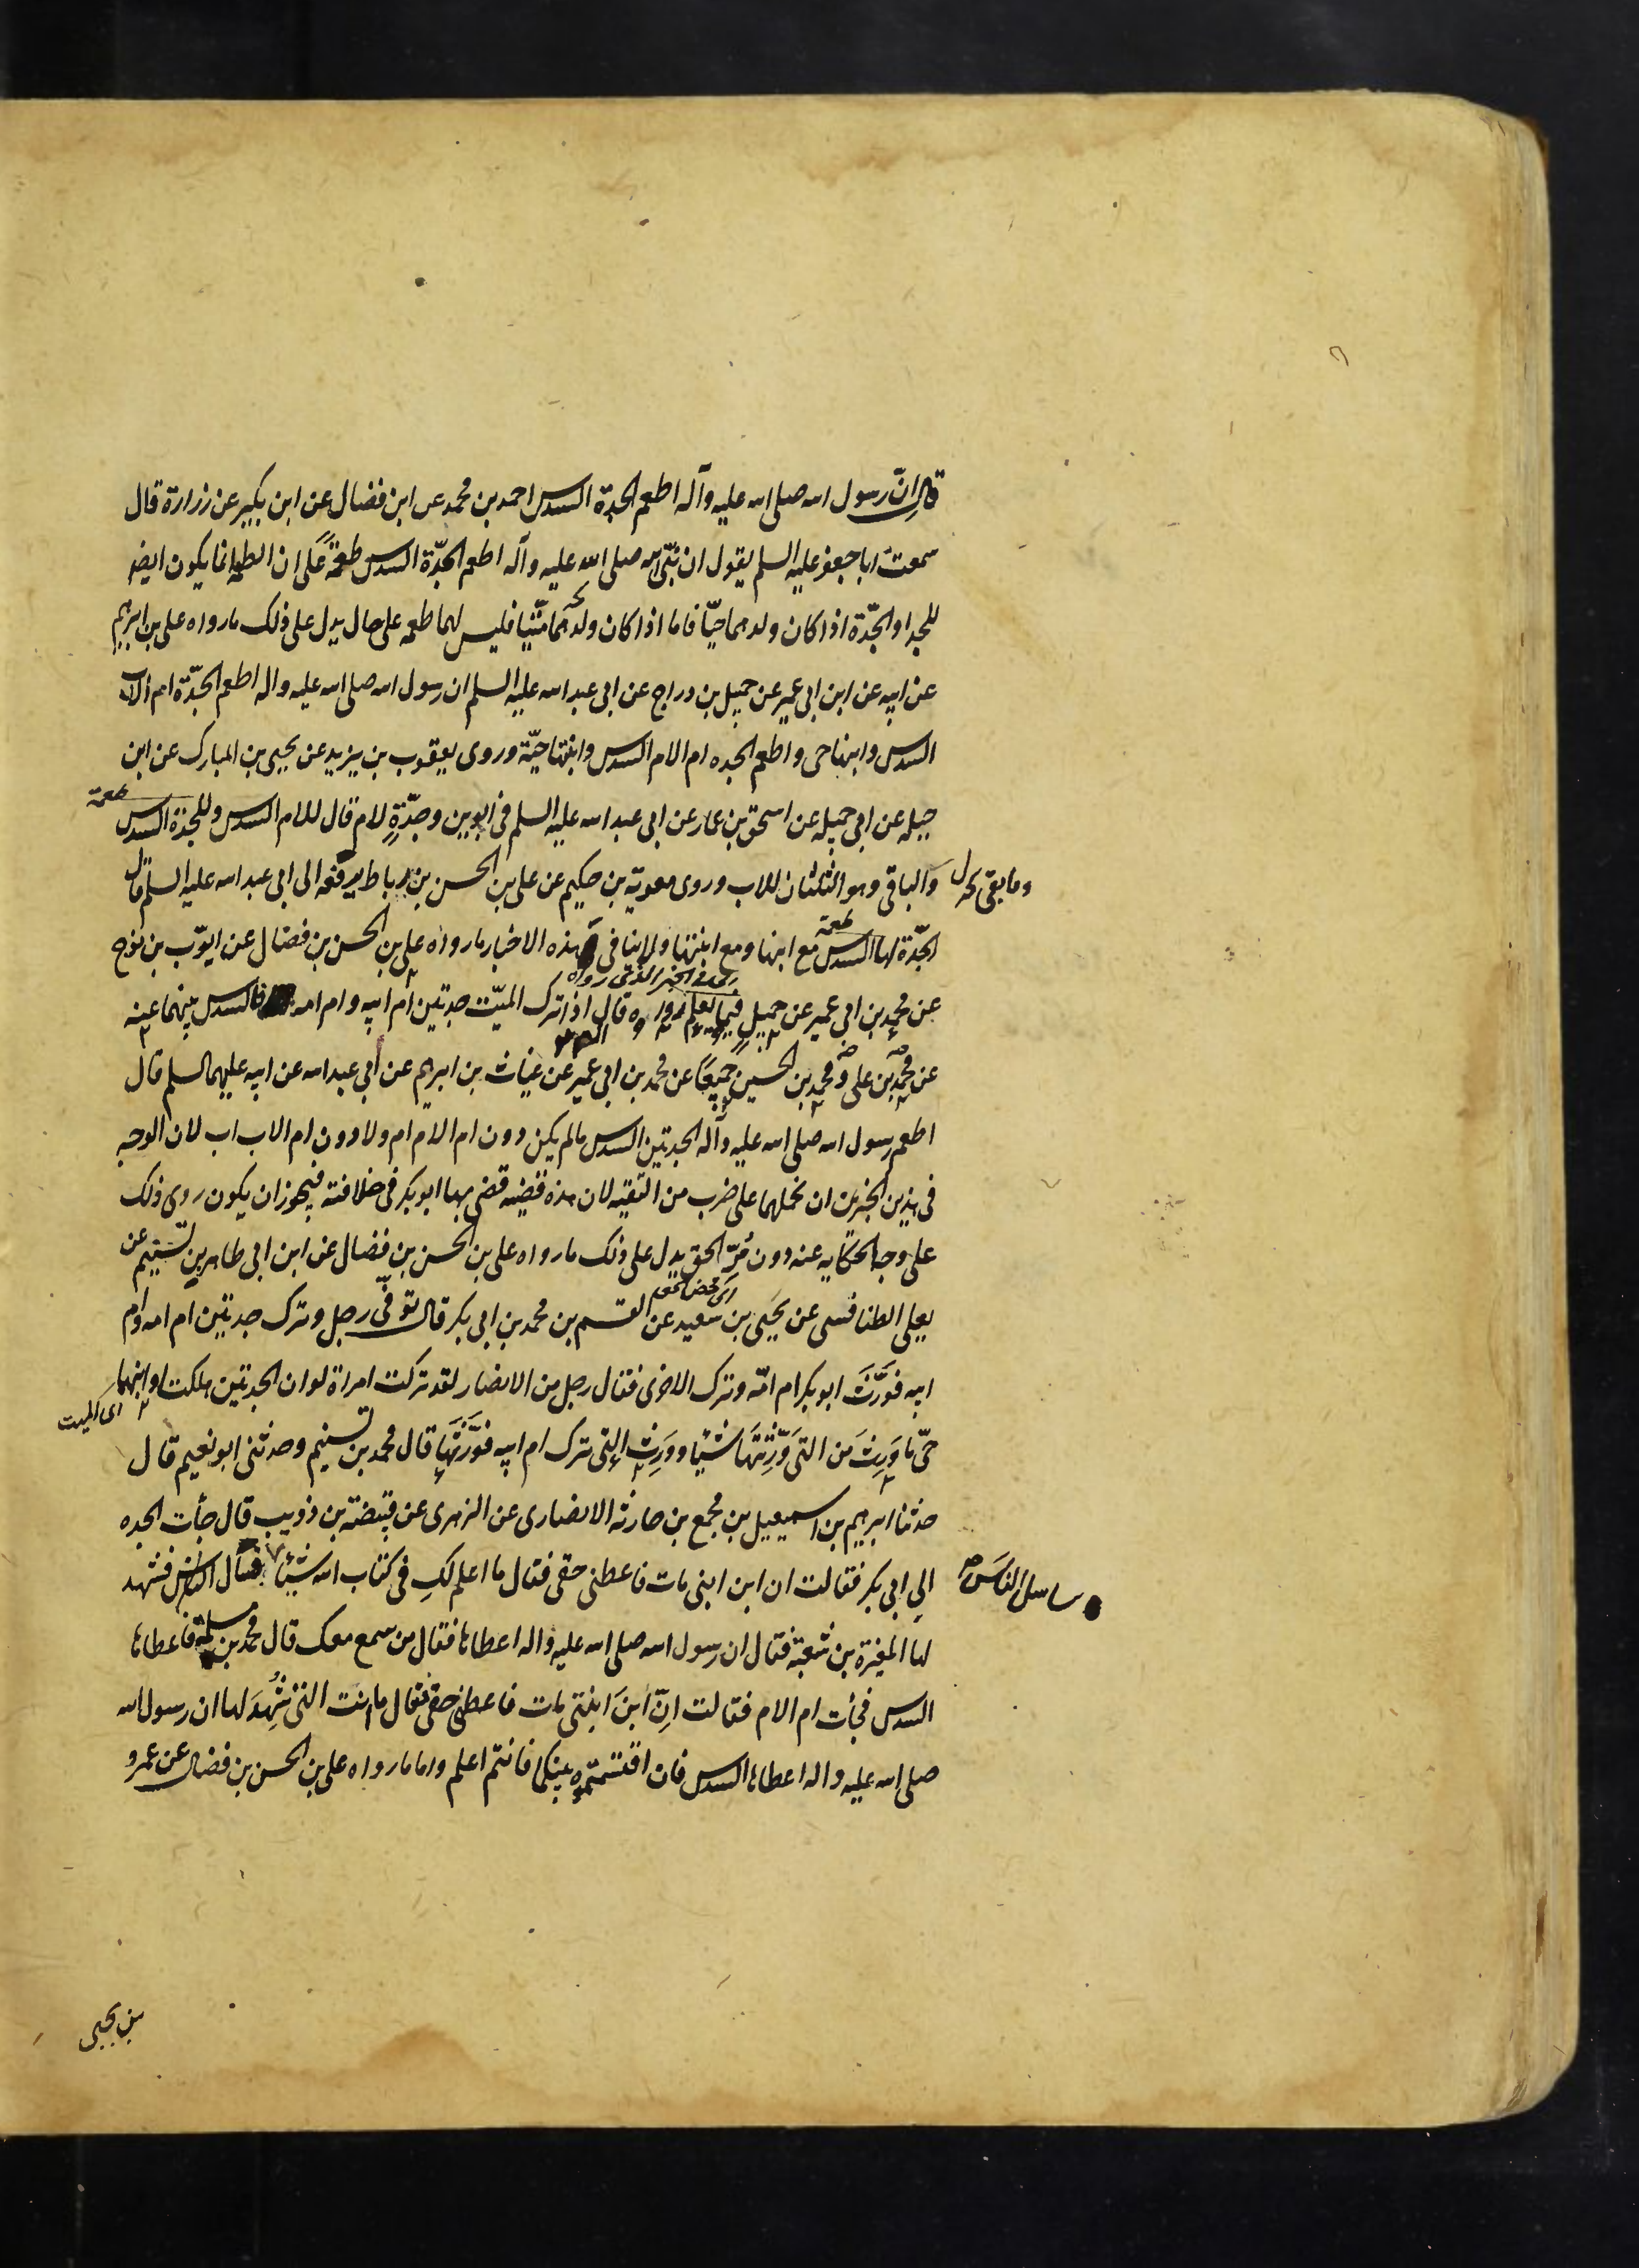 قال ان رسول الله صلى الله عليه وآله اطعم الجدة السدس احمد بن محمد عن ابن فضال عن ابن بكير عن زرارة قال
سمعت ابا جعفر عليه السلم يقول ان نبى الله صلى الله عليه وآله اطعم الجدّة السدس طعمةً على ان الطعمة انما يكون ايضا
للجد او الجدّة اذا كان ولدهما حيّا فاما اذا كان ولدهما ميّتا فليس لهما طعمه على حال يدل على ذلك ما رواه على بن ابرهيم
عن ابيه عن ابن ابى عمير عن جميل بن دراج عن ابى عبد الله عليه السلم ان رسول الله صلى الله عليه واله اطعم الجدّة ام الاب
السدس وابنها حى واطعم الجده ام الام السدس وابنتها حيّة وروى يعقوب بن يزيد عن يحيى بن المبارك عن ابن
جبله عن ابى جميله عن اسحق بن عمار عن ابى عبد الله عليه السلم فى ابوين وجدّةٍ لام قال للام السدس وللجدة السدس
طعمة
وما بقى
والباقى وهو الثلثان للاب وروى معوية بن حكيم عن على بن الحسن بن رباط يرفعه الى ابى عبد الله عليه السلم قال
الجدّة لها السدس مع ابنها ومع ابنتها ولا ينافى هذه الاخبار ما رواه على بن الحسن بن فضال عن ايوّب بن نوح
طعمة
عن محمد بن ابى عمير عن جميلٍ فيما يعلم رواه قال اذا ترك الميّت جدتين ام ابيه وام امه فالسدس بينهما عنه
عن محمد بن على ومحمد بن الحسين جميعًا عن محمد بن ابى عمير عن غياث بن ابرهيم عن ابى عبد الله عن ابيه عليهما السلم قال
اطعم رسول الله صلى الله عليه وآله الجدتين السدس مالم يكن دون ام الام ام ولا دون ام الاب اب لان الوجه
فى هذين الخبرين ان نحملهما على ضرب من التقيه لان هذه قضيه قضى بها ابو بكر فى خلافته فيجوز ان يكون روى ذلك
على وجه الحكايه عنه دون مُرّ الحق يدل على ذلك ما رواه على بن الحسن بن فضال عن ابن ابى طاهر بن تسنيم عن
يعلى الطنافسى عن يحيى بن سعيد عن القسم بن محمد بن ابى بكر قال توفّى رجل وترك جدتين ام امه وام
ابيه فورّث ابو بكر ام امّه وترك الاخرى فقال رجل من الانصار لقد تركت امراة لو ان الجدتين هلكتا وابنهما
اى الميت
حىّ ما وَرِثَ من التى وَرّثتَهَا شيئا ووَرِث التى ترك ام ابيه فورّثَهَا قال محمد بن تسنيم وحدثنى ابو نعيم قال
حدثنا ابرهيم بن اسمعيل بن مجمع بن حارثة الانصارى عن الزهرى عن قبيضة بن ذويب قال جأت الجده
الى ابى بكر فقالت ان ابن ابنى مات فاعطنى حقى فقال ما اعلم لكِ فى كتاب الله شيئا فسأل الناس فشهد
لها المغيرة بن شعبة فقال ان رسول الله صلى الله عليه واله اعطاها فقال من سمع معك قال محمد بن مسلمة فاعطاها
السدس فجأت ام الام فقالت انّ ابنَ ابنتى مات فاعطنى حقى فقال ما انت التى شُهِدَ لها ان رسول الله
صلى الله عليه واله اعطاها السدس فان اقتسمتموه بينكما فانتم اعلم واما ما رواه على بن الحسن بن فضال عن عمرو
بن يحيى